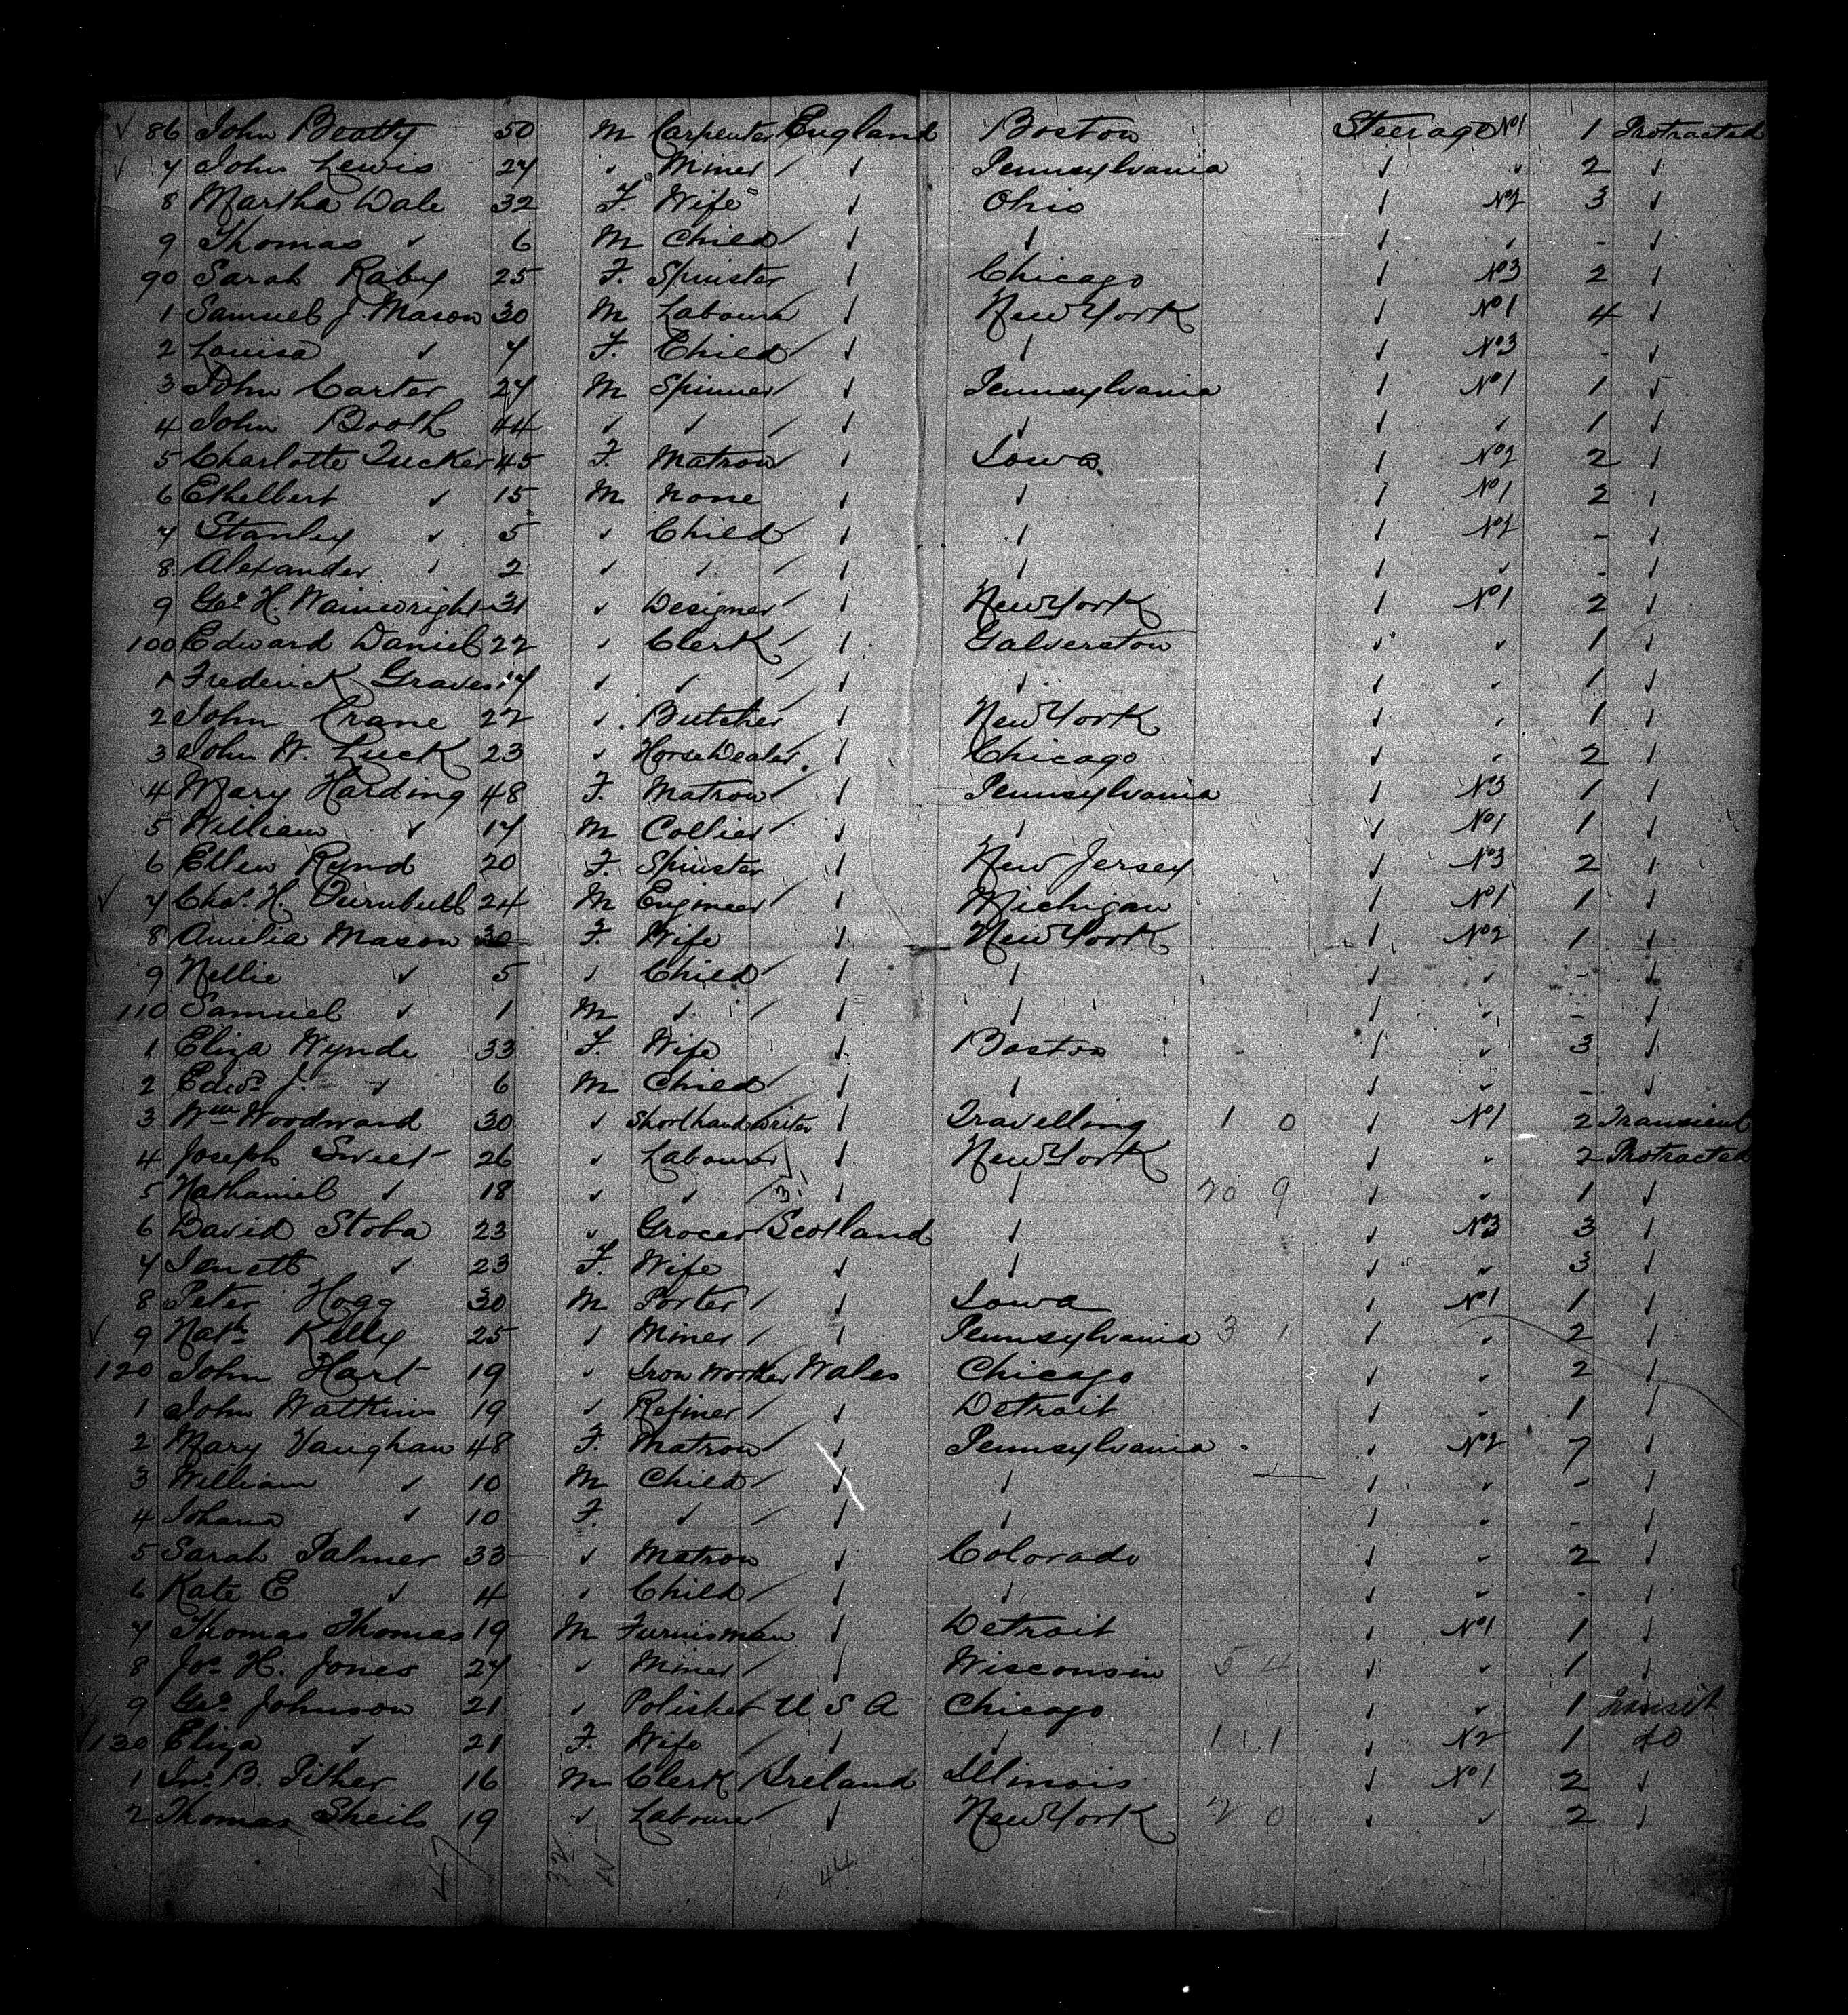 ✓ 86 John Beatty 50 M Carpenter England Boston Steerage No1 1 Protracted
✓ 7 John Lewis 27 ✓ Miner / ✓ Pennsylvania ✓ ✓ 2 ✓
8 Martha Dale 32 F. Wife ✓ Ohio ✓ No2 3 ✓
9 Thomas ✓ 6 M Child / ✓ ✓ ✓ ✓ - ✓
90 Sarah Raby 25 F. Spinster ✓ Chicago ✓ No3 2 ✓
1 Samuel J. Mason 30 M Labourer ✓ New York ✓ No1 4 ✓
2 Louisa ✓ 7 F. Child / ✓ ✓ ✓ No3 - ✓
3 John Carter 27 M Spinner / ✓ Pennsylvania ✓ No1 1 ✓
4 John Booth 44 ✓ ✓ / ✓ ✓ ✓ ✓ 1 ✓
5 Charlotte Tucker 45 F. Matron ✓ Iowa ✓ No2 2 ✓
6 Ethelbert ✓ 15 M None ✓ ✓ ✓ No1 2 ✓
7 Stanley ✓ 5 ✓ Child / ✓ ✓ ✓ No2 - ✓
8 Alexander ✓ 2 ✓ ✓ / ✓ ✓ ✓ ✓ - ✓
9 Geo. H. Wainwright 31 ✓ Designer / ✓ New York ✓ No1 2 ✓
100 Edward Daniel 22 ✓ Clerk / ✓ Galverston ✓ ✓ 1 ✓
1 Frederick Graves 17 ✓ ✓ / ✓ ✓ ✓ ✓ 1 ✓
2 John Crane 22 ✓ Butcher ✓ New York ✓ ✓ 1 ✓
3 John W. Luck 23 ✓ Horse Dealer ✓ Chicago ✓ ✓ 2 ✓
4 Mary Harding 48 F. Matron / ✓ Pennsylvania ✓ No3 1 ✓
5 William ✓ 17 M Collier / ✓ ✓ ✓ No1 1 ✓
6 Ellen Rynd 20 F. Spinster ✓ New Jersey ✓ No3 2 ✓
✓ 7 Chas. H. Turnbull 24 M Engineer / ✓ Michigan ✓ No1 1 ✓
8 Amelia Mason 30 F. Wife ✓ New York ✓ No2 1 ✓
9 Nellie ✓ 5 ✓ Child / ✓ ✓ ✓ ✓ - ✓
110 Samuel ✓ 1 M ✓ / ✓ ✓ ✓ ✓ - ✓
1 Eliza Wynde 33 F. Wife ✓ Boston ✓ ✓ 3 ✓
2 Edwd. J. ✓ 6 M Child / ✓ ✓ ✓ ✓ - ✓
3 Wm Woodward 30 ✓ Shorthand Writer ✓ Travelling 1 0 ✓ No1 2 Transient
4 Joseph Sweet 26 ✓ Labourer ✓ New York ✓ ✓ 2 Protracted
5 Nathaniel ✓ 18 ✓ ✓ / 31 ✓ ✓ 20 9 ✓ ✓ 1 ✓
6 David Stoba 23 ✓ Grocer Scotland ✓ ✓ No3 3 ✓
7 Janett ✓ 23 F. Wife ✓ ✓ ✓ ✓ 3 ✓
8 Peter Hogg 30 M Porter / ✓ Iowa ✓ No1 1 ✓
✓ 9 Nath. Kelly 25 ✓ Miner / ✓ Pennsylvania 3 1 ✓ ✓ 2 ✓
120 John Hart 19 ✓ Iron Worker Wales Chicago ✓ ✓ 2 ✓
1 John Watkins 19 ✓ Refiner / ✓ Detroit ✓ ✓ 1 ✓
2 Mary Vaughan 48 F. Matron / ✓ Pennsylvania ✓ No2 7 ✓
3 William ✓ 10 M Child / ✓ ✓ ✓ ✓ - ✓
4 Johana ✓ 10 F. ✓ / ✓ ✓ ✓ ✓ - ✓
5 Sarah Palmer 33 ✓ Matron ✓ Colorado ✓ ✓ 2 ✓
6 Kate E ✓ 4 ✓ Child / ✓ ✓ ✓ ✓ - ✓
7 Thomas Thomas 19 M Furnisman ✓ Detroit ✓ No1 1 ✓
8 Jos. H. Jones 27 ✓ Miner / ✓ Wisconsin 5 4 ✓ ✓ 1 ✓
9 Geo. Johnson 21 ✓ Polisher U S A Chicago ✓ ✓ 1 Transit
130 Eliza ✓ 21 F. Wife / ✓ ✓ 1 1 ✓ No2 1 do
1 Jno. B. Pither 16 M Clerk / Ireland Illinois ✓ No1 2 ✓
2 Thomas Sheils 19 ✓ Labourer ✓ New York 2 0 ✓ ✓ 2 ✓
47 44